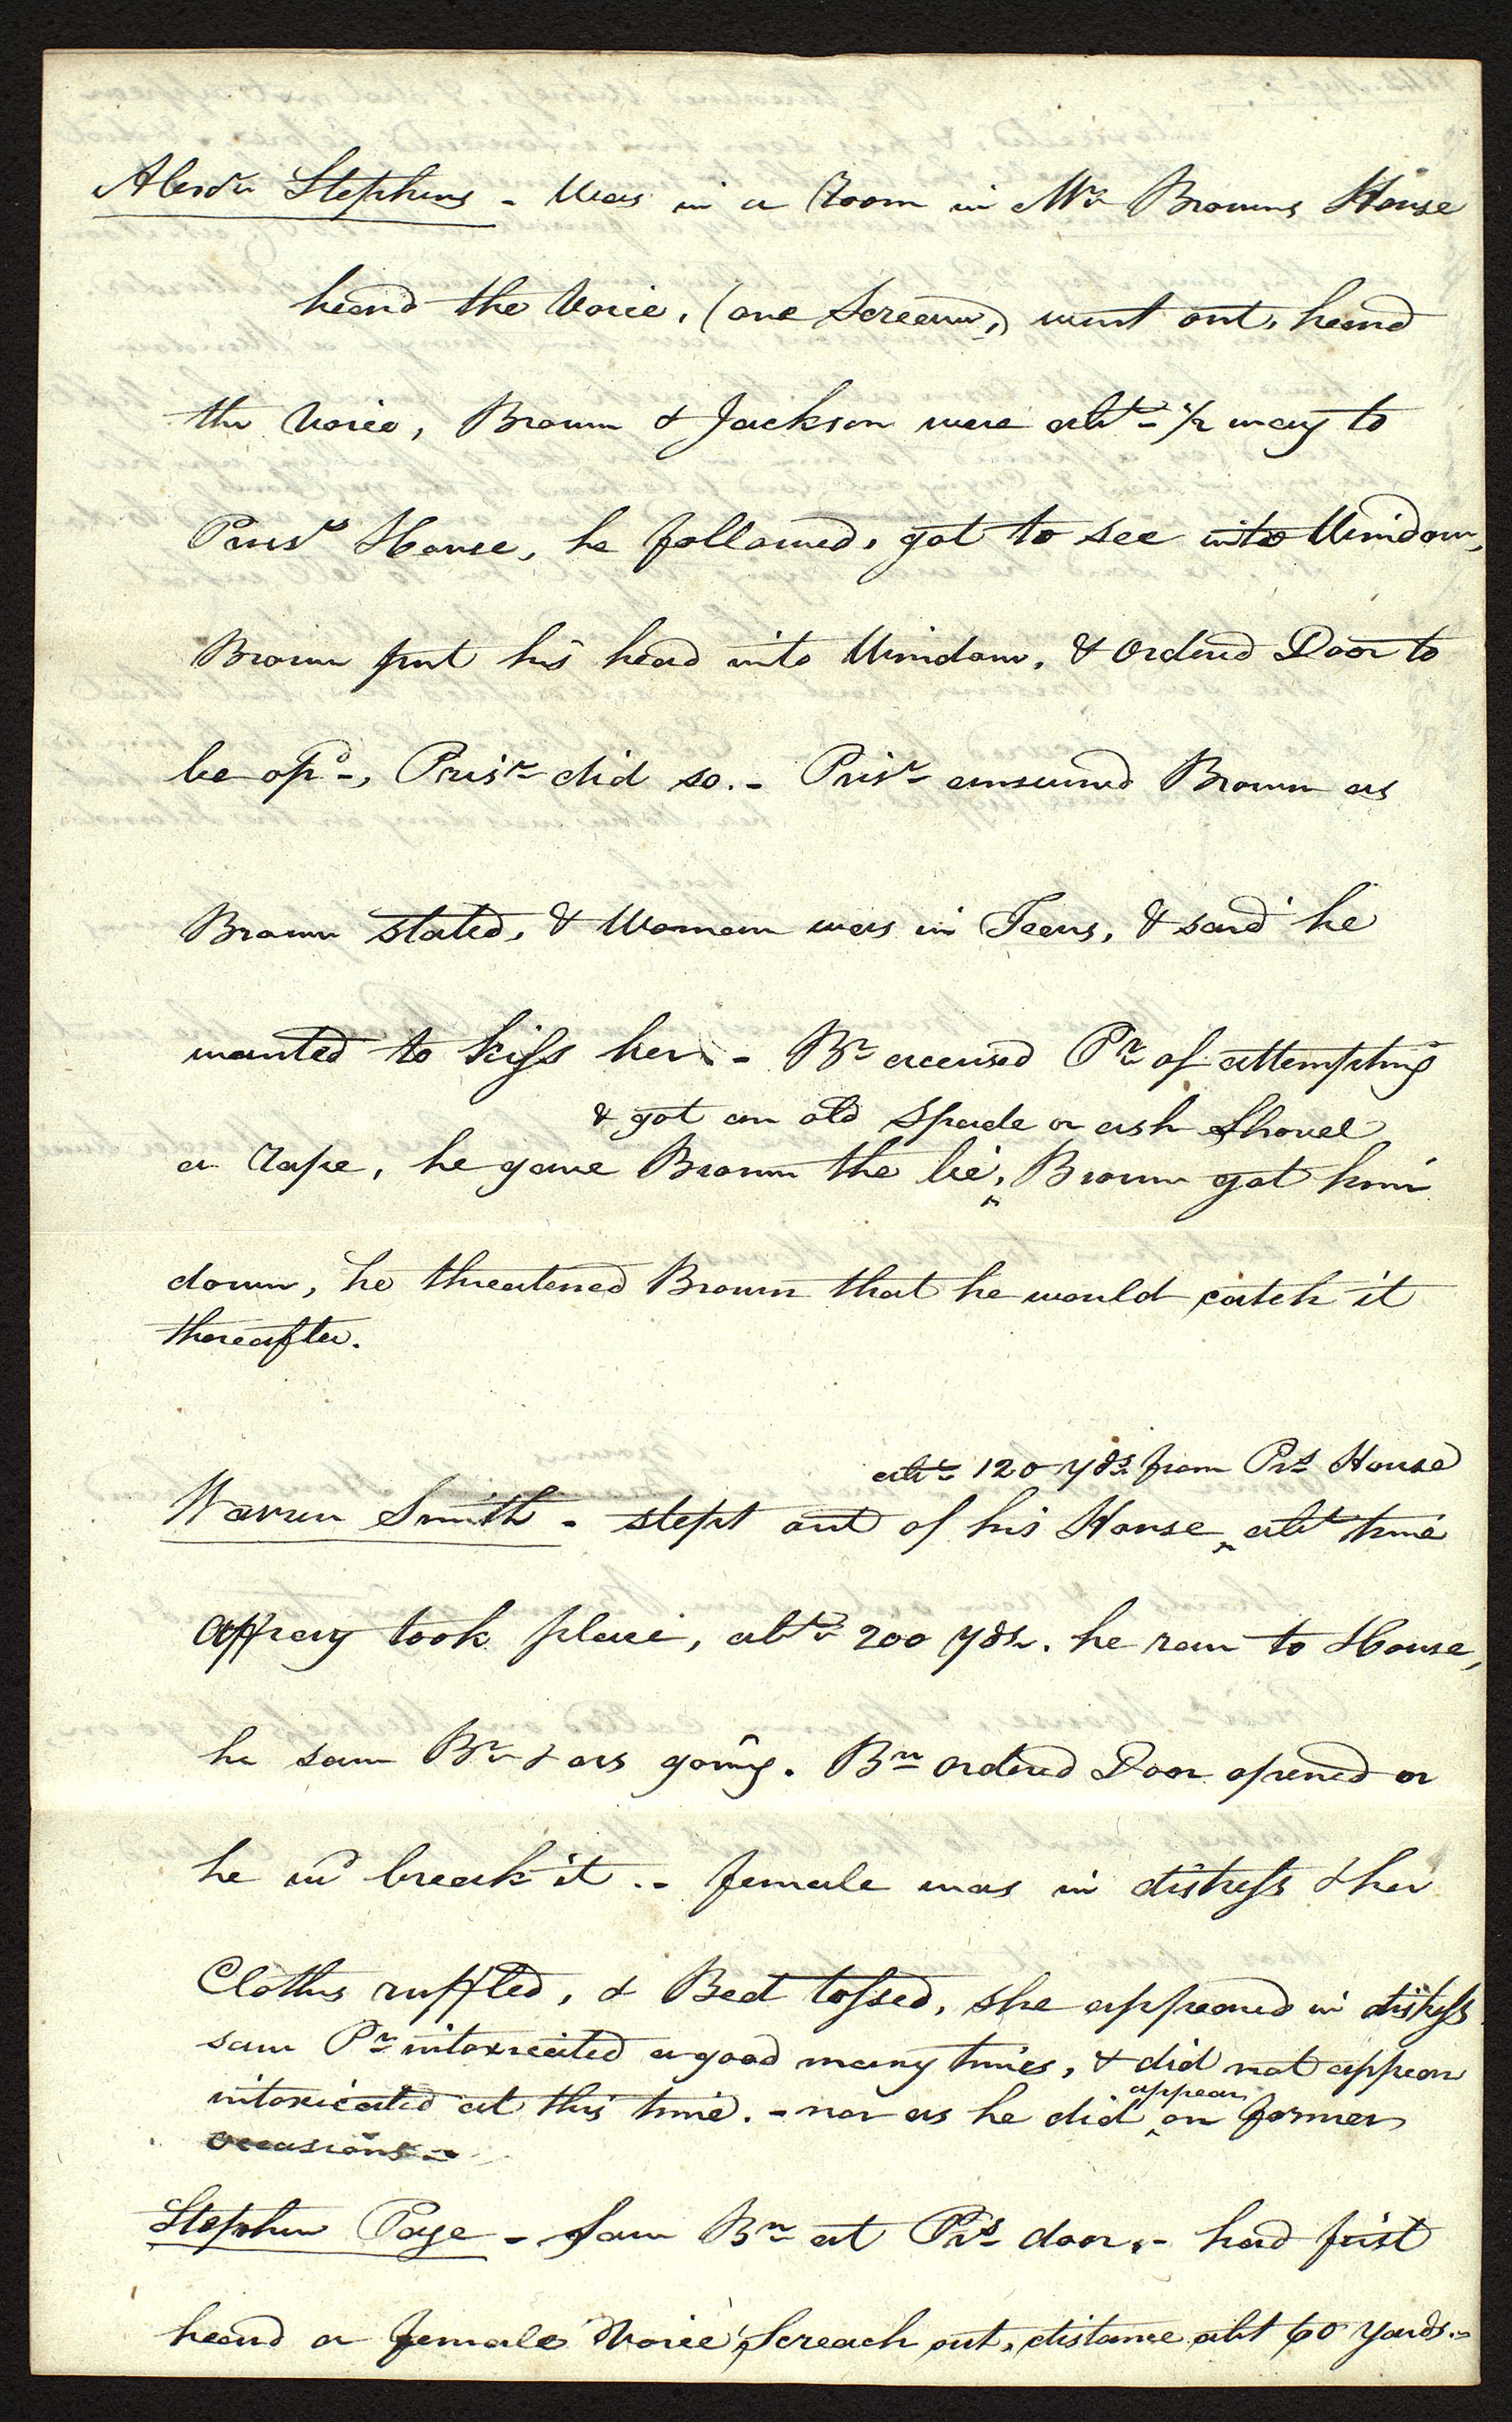 Alexdr Stephens - Was in a Room in Mr Browns House
heard the Voice, (one Scream,) went out, heard
the Voice, Brown & Jackson were abt 1/2 way to
Prisrs House, he followed, got to see into Window,
Brown put his head into Window, & ordered Door to
be opd, Prisr did so. - Prisr answered Brown as
Brown stated, & Woman was in Tears, & said he
wanted to kiss her. - Br accused Pr of attempting
& got an old Spade or ash Shovel
a rape, he gave Brown the lie, Brown got him
down, he threatened Brown that he would catch it
thereafter.
abt 120 yds from Prs House
Warren Smith - stept out of his House abt time
affray took place, abt 200 yds. he ran to House,
he saw Br going. Brn ordered Door opened or
he wd break it. - female was in distress & her
Cloths ruffled, & Bed tossed, she appeared in distress
saw Pr intoxicated a good many times, & did not appear
appear
intoxicated at this time. - nor as he did on former
occasions -
Stephen Page - Saw Brn at Prs door, - had first
heard a female Voice, Screach out, distance abt 60 yards. -